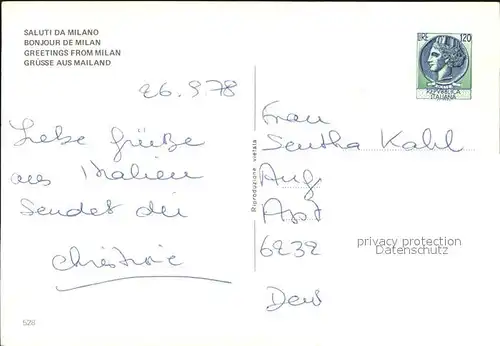 SALUTI DA MILANO
BONJOUR DE MILAN
GREETINGS FROM MILAN
GRÜSSE AUS MAILAND
LIRE 120
REPVBBLICA
ITALIANA
26.9.78
Liebe Grüße
aus Italien
Sendet dir
Christine
Riproduzione vietata
Frau
Sentha Kahl
Aug
Asst
6232
privacy protection
Datenschutz
Deu
528